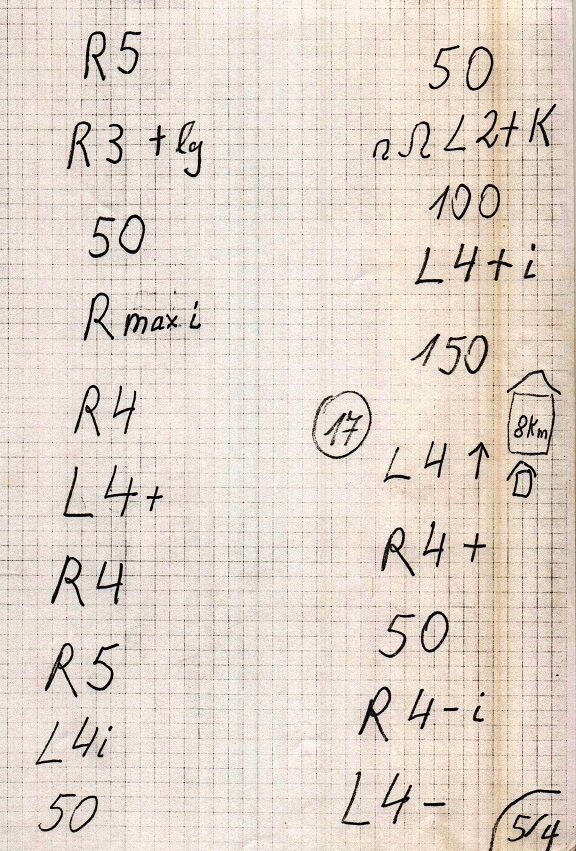 R5
R3 +lg
50
R maxi
R4
L4+
R4
R5
L4i
50
50
n Ω L2+K
100
L4+i
150
8Km
17
L4↑
R4+
50
R4-i
L4-
5/4